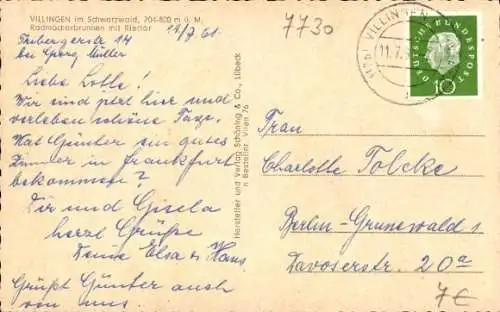 VILLINGEN im Schwarzwald, 704-800 m ü. M.
Radmacherbrunnen mit Riettor
11/7.61.
Tribergerstr 14
bei Georg Müller
Liebe Lotte!
Wir sind jetzt hier und
verleben schöne Tage.
Hat Günter ein gutes
Zimmer in Frankfurt
bekommen?
Dir und Gisela
herzl Grüße
Deine Elsa u Hans
Grüßt Günter auch
von uns.
Hersteller und Verlag Schöning & Co., Lübeck
n Besteller: Vilien 76
7730
VILLINGEN
11.7.
DEUTSCHE BUNDESPOST
10
Frau
Charlotte Tolcke
Berlin-Grunewald 1
Davoserstr. 20a
7€